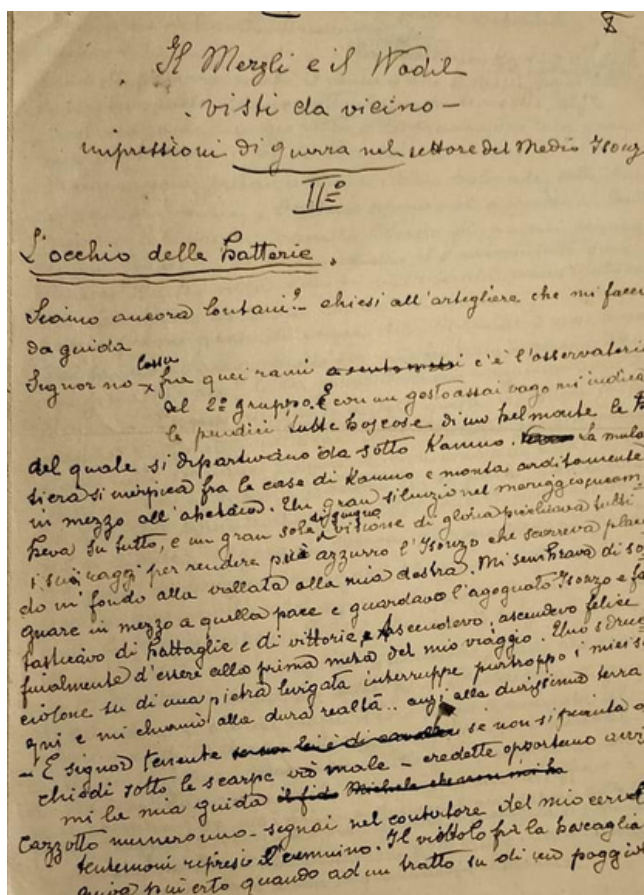 Il Merzli e il Wodil
visti da vicino -
impressioni di guerra nel settore del Medio Isonz
II°
L'occhio delle batterie.
Siamo ancora lontani? - chiesi all'artigliere che mi facev
da guida
Signor no - fra quei rami c'è l'osservatorio
Lassu
del 2° gruppo. E con un gesto assai vago mi indica
le pendici tutte boscose di un bel monte le
del quale si dipartivano da sotto Kamno. La mula
tiera si inerpica fra le case di Kamno e monta arditamente
in mezzo all'abetaio. Un gran silenzio nel meriggio incom
beva su tutto, e un gran sole di giugno visione di gloria tutti
i suoi raggi per rendere più azzurro l'Isonzo che scorreva plac
do in fondo alla vallata alla mia destra. Mi sembrava di so
gnare in mezzo a quella pace e guardavo l'agognato Isonzo e fa
tasticavo di battaglie e di vittorie, e ascendevo, ascendevo felice
finalmente d'essere alla prima meta del mio viaggio. Uno sdruc
ciolone su di una pietra levigata interruppe purtroppo i miei so
gni e mi chiamò alla dura realtà.. anzi alla durissima terra
- E signor tenente se non si pianta
chiodi sotto le scarpe va male - credette opportuno avvi
mi la mia guida
Cazzotto numero uno - segnai nel contatore del mio cervel
e ripresi il cammino. Il viottolo fra la boscaglia
più erto quando ad un tratto su di un poggio